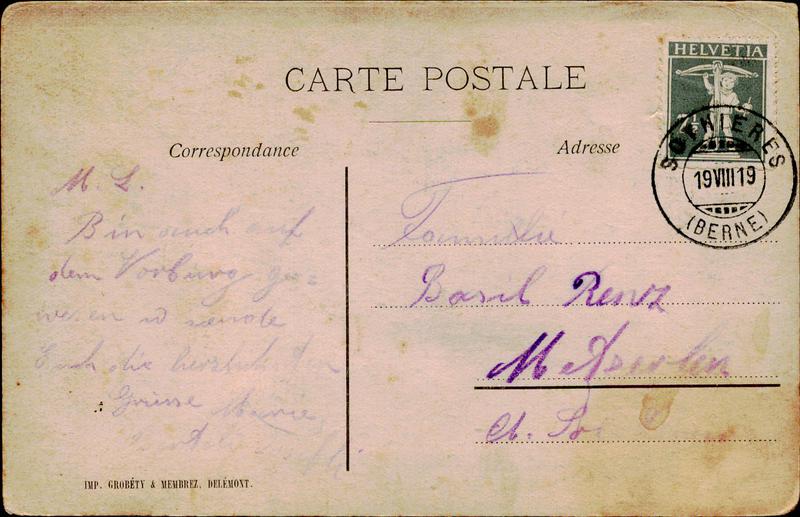 CARTE POSTALE
HELVETIA
7½
SOYHIÈRES
19 VIII 19
(BERNE)
Correspondance
Adresse
M. L.
Bin auch auf
dem Vorburg ge=
wesen u sende
Euch die herzlichsten
Grüsse Marie
Familie
Basil Renz
Metzerlen
Ct. So
IMP. GROBÉTY & MEMBREZ, DELÉMONT.